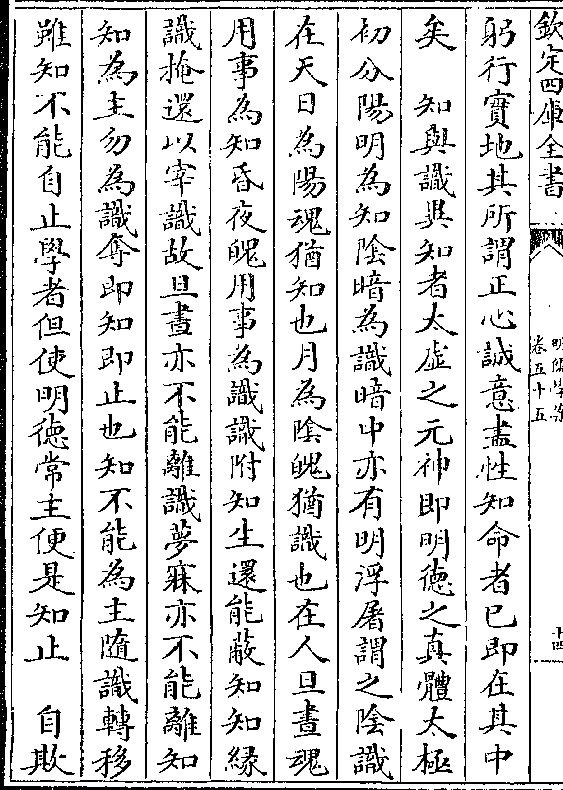 欽定四庫全書
卷五十五
十四
躬行實地其所謂正心誠意盡性知命者已即在其中
矣　知與識異知者太虛之元神即明德之真體太極
初分陽明為知陰暗為識暗中亦有明浮屠謂之陰識
在天日為陽魂猶知也月為陰魄猶識也在人旦晝魂
用事為知昏夜魄用事為識識附知生還能蔽知知緣
識掩還以宰識故旦晝亦不能離識夢寐亦不能離知
知為主勿為識奪即知即止也知不能為主隨識轉移
雖知不能自止學者但使明德常主便是知止　自欺